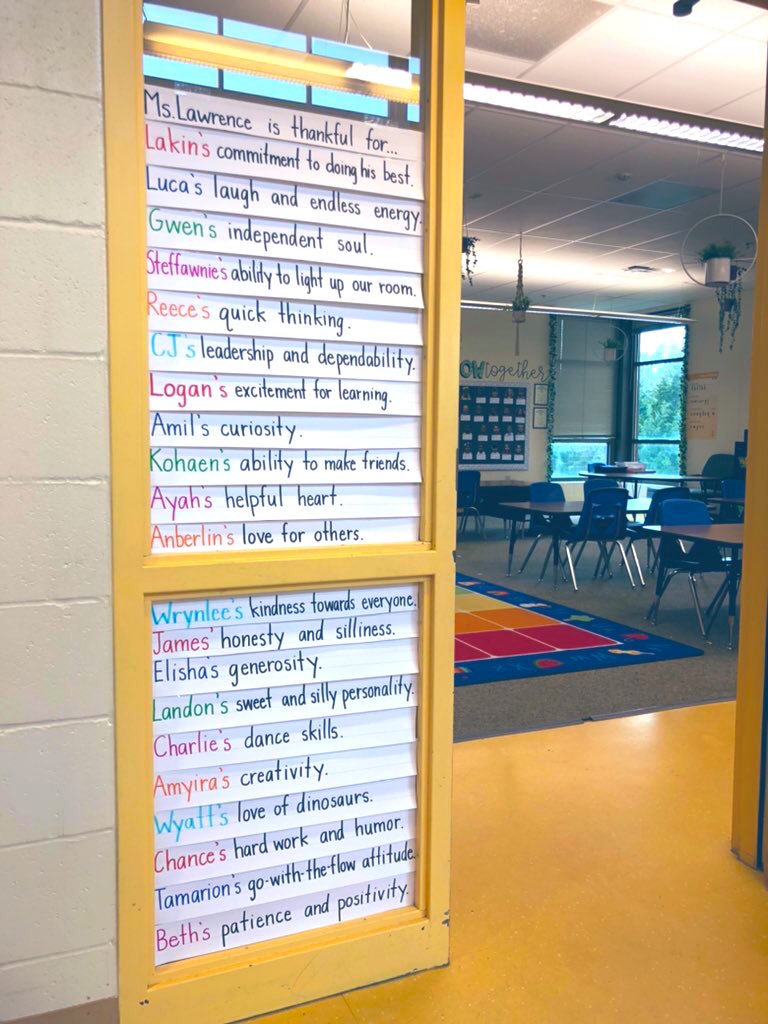 Ms. Lawrence is thankful for...
Lakin's commitment to doing his best.
Luca's laugh and endless energy.
Gwen's independent soul.
Steffawnie's ability to light up our room.
Reece's quick thinking.
CJ's leadership and dependability.
Logan's excitement for learning.
Amil's curiosity.
Kohaen's ability to make friends.
Ayah's helpful heart.
Anberlin's love for others.
Wrynlee's kindness towards everyone.
James' honesty and silliness.
Elisha's generosity.
Landon's sweet and silly personality.
Charlie's dance skills.
Amyira's creativity.
Wyatt's love of dinosaurs.
Chance's hard work and humor.
Tamarion's go-with-the-flow attitude.
Beth's patience and positivity.
together